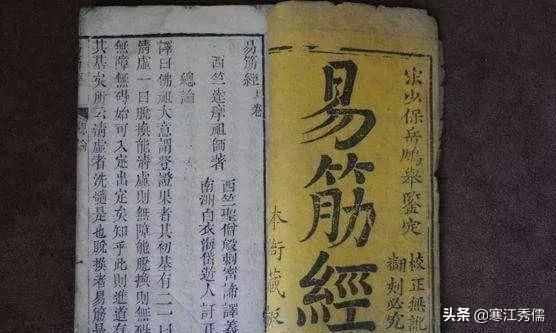 宋少保岳鵬舉鑒定
校正無訛
翻刻必究
易筋經
本衙藏板
易筋經上卷
西竺達摩祖師著
西竺聖僧般剌密諦譯義
南洲白衣海岱遊人訂正
總論
譯曰佛祖大意謂登證果者其初基有二一曰
清虛一曰脫換能清虛則無障能脫換則無礙
無障無礙始可入定出定矣知乎此則進道有
其基矣所云清虛者洗髓是也脫換者易筋是
头条 @寒江秀儒